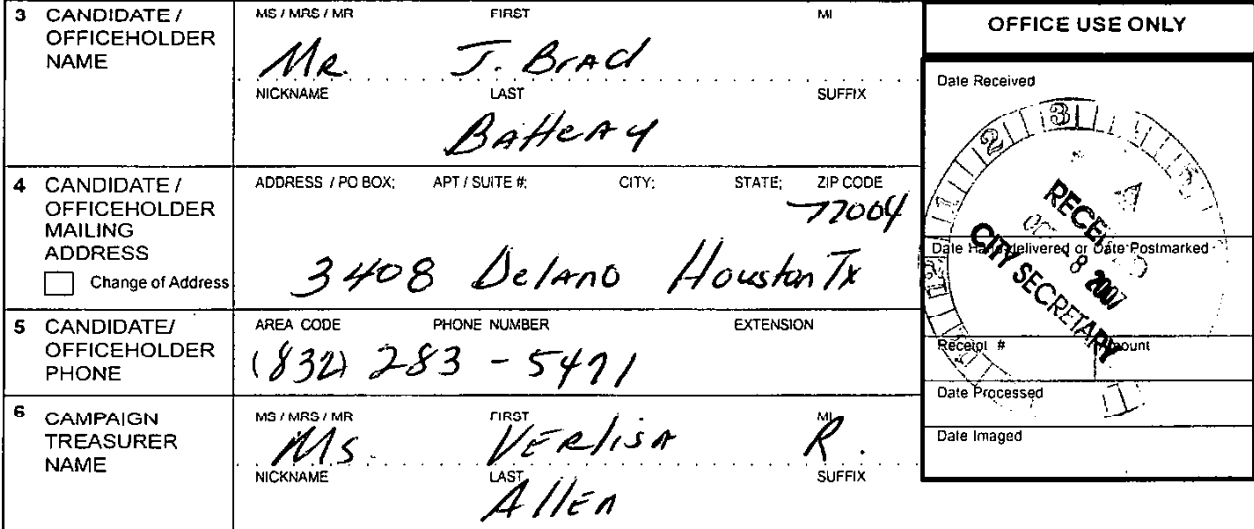 3 CANDIDATE / OFFICEHOLDER NAME
MS / MRS / MR FIRST MI
Mr. J. Brad
NICKNAME LAST SUFFIX
Batteay
4 CANDIDATE / OFFICEHOLDER MAILING ADDRESS
Change of Address
ADDRESS / PO BOX; APT / SUITE #; CITY; STATE; ZIP CODE
77004
3408 Delano Houston Tx
5 CANDIDATE/ OFFICEHOLDER PHONE
AREA CODE PHONE NUMBER EXTENSION
(832) 283 - 5471
6 CAMPAIGN TREASURER NAME
MS / MRS / MR FIRST MI
Ms. Verlisa R.
NICKNAME LAST SUFFIX
Allen
OFFICE USE ONLY
Date Received
RECEIVED
OCT 8 2007
CITY SECRETARY
Date Hand-delivered or Date Postmarked
Receipt # Amount
Date Processed
Date Imaged